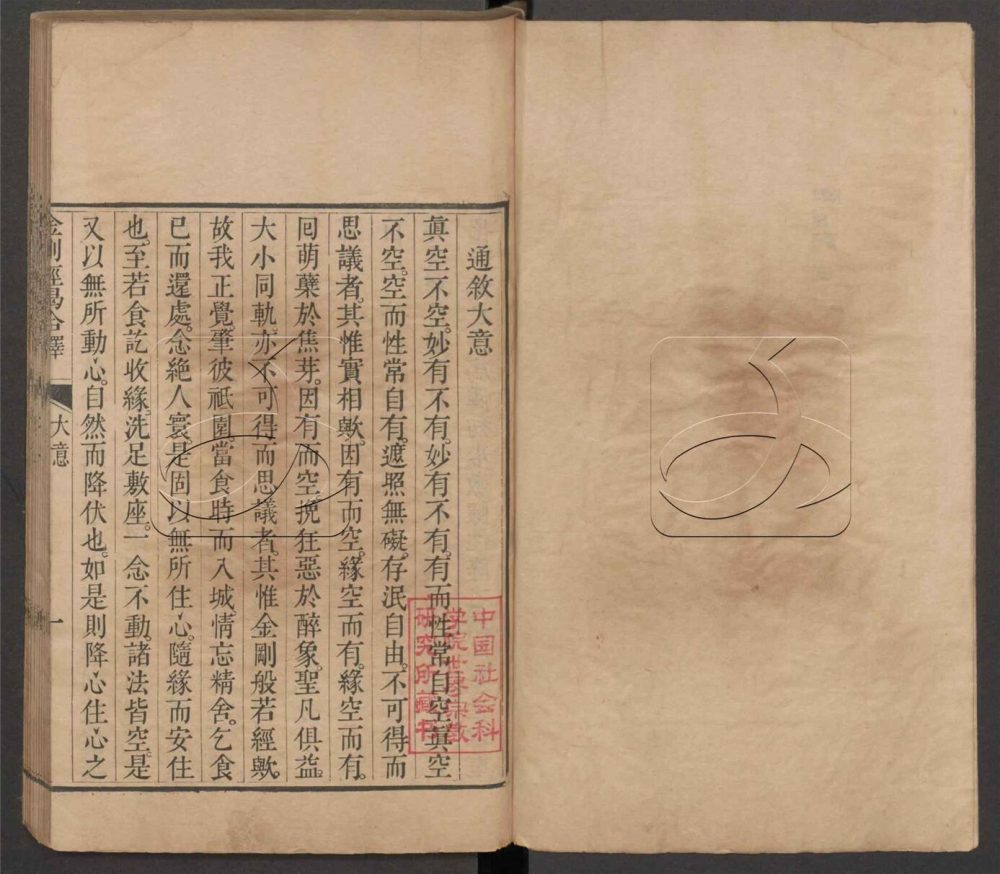 通敘大意
真空不空。妙有不有。妙有不有。有而性常自空。眞空
不空。空而性常自有。遮照無礙。存泯自由。不可得而
思議者。其惟實相歟。因有而空。緣空而有。緣空而有。
回萌蘖於焦芽。因有而空。挽狂惡於醉象。聖凡俱益。
大小同軌。亦不可得而思議者。其惟金剛般若經歟。
故我正覺。肇彼祇園。當食時而入城。情忘精舍。乞食
已而還處。念絕人寰。是固以無所住心。隨緣而安住
也。至若食訖收緣。洗足敷座。一念不動。諸法皆空。是
又以無所動心。自然而降伏也。如是則降心住心之
大意
一
中国社会科
学院世界宗教
研究所藏书